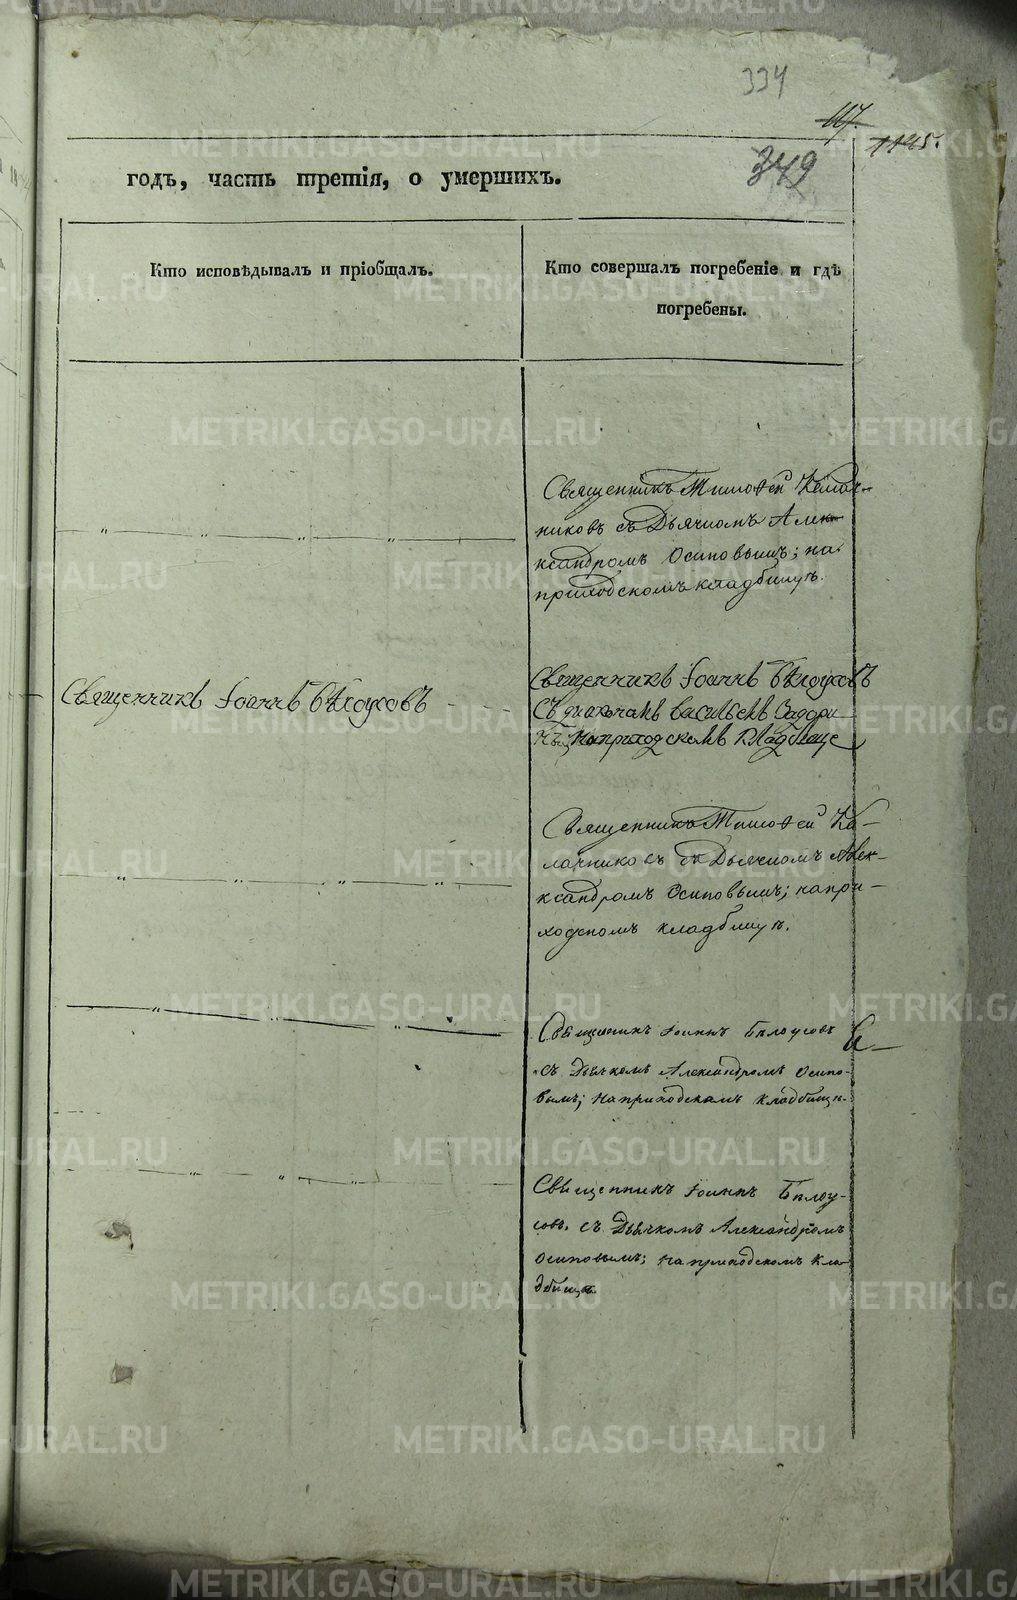 334
117.
1125.
349
годъ, часть третія, о умершихъ.
Кто исповѣдывалъ и пріобщалъ.
Кто совершалъ погребеніе и гдѣ
погребены.
Священникъ Тимоѳей Калач-
никовъ съ Дьячкомъ Алек-
ксандромъ Осиповымъ; на
приходскомъ кладбищѣ.
Священникъ Іоаннъ Бѣлоусовъ
Священникъ Іоаннъ Бѣлоусовъ
Съ діакономъ василіемъ
на приходскомъ кладбище
Священникъ Тимоѳей Ка-
лачниковъ съ Дьячкомъ Алек-
ксандромъ Осиповымъ; на при-
ходскомъ кладбищѣ.
Священникъ Іоаннъ Бѣлоусовъ
съ Дьячкомъ Александромъ Осипо-
вымъ; на приходскомъ кладбищѣ.
Священникъ Іоаннъ Бѣлоу-
совъ съ Дьячкомъ Александромъ
Осиповымъ; на приходскомъ кла-
дбищѣ.
METRIKI.GASO-URAL.RU